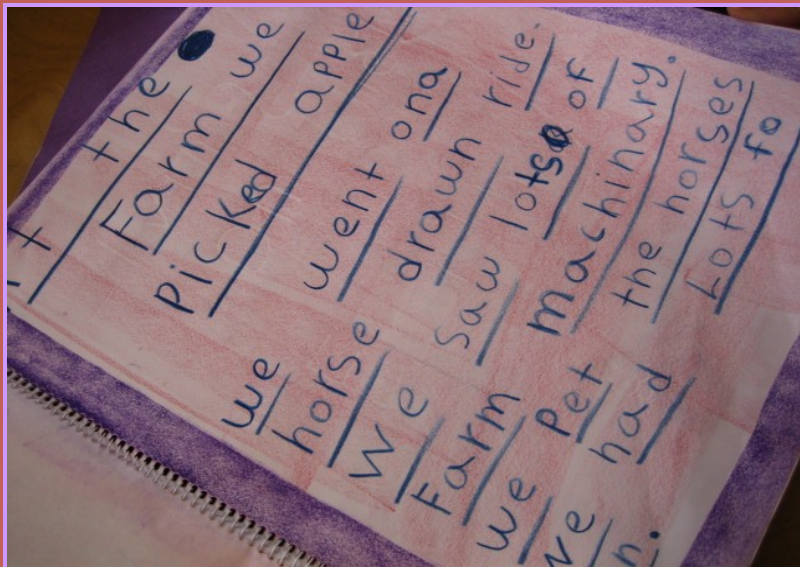 the
Farm we
Picked apple
we went ona
horse drawn ride.
We saw lots of
Farm machinary.
we Pet the horses
we had Lots fo